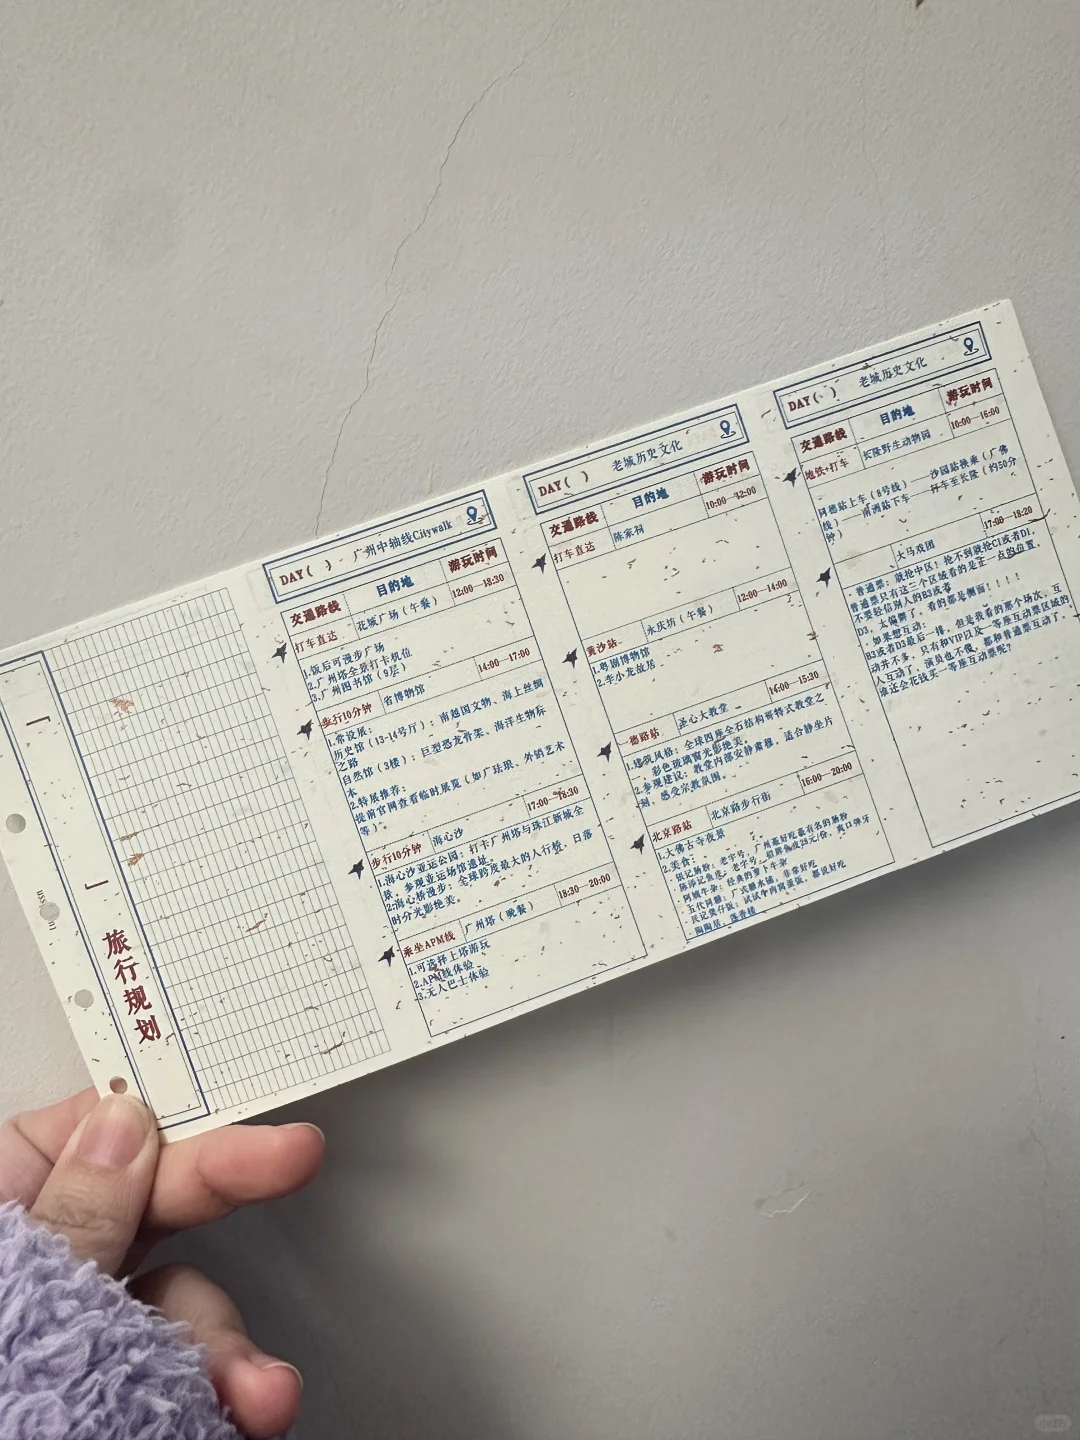 「
」
旅行规划
DAY( )· 广州中轴线Citywalk
交通路线 目的地 游玩时间
打车直达 花城广场(午餐) 12:00—18:30
1.饭后可漫步广场
2.广州塔全景打卡机位
3.广州图书馆(9层)
步行10分钟 省博物馆 14:00—17:00
1.常设展:
历史馆(13-14号厅):南越国文物、海上丝绸
之路
自然馆(3楼):巨型恐龙骨架、海洋生物标
本
2.特展推荐:
提前官网查看临时展览(如广珐琅、外销艺术
等)
步行10分钟 海心沙 17:00—18:30
1.海心沙亚运公园:打卡广州塔与珠江新城全
景,参观亚运场馆遗址。
2.海心桥漫步:全球跨度最大的人行桥,日落
时分光影绝美。
乘坐APM线 广州塔(晚餐) 18:30—20:00
1.可选择上塔游玩
2.APM线体验
3.无人巴士体验
DAY( ) 老城历史文化
交通路线 目的地 游玩时间
打车直达 陈家祠 10:00—12:00
黄沙站 永庆坊(午餐) 12:00—14:00
1.粤剧博物馆
2.李小龙故居
一德路站 圣心大教堂 14:00—15:30
1.建筑风格:全球四座全石结构哥特式教堂之
一,彩色玻璃窗光影绝美。
2.参观建议:教堂内部安静肃穆,适合静坐片
刻,感受宗教氛围。
北京路站 北京路步行街 16:00—20:00
1.大佛古寺夜景
2.美食:
·银记肠粉:老字号,广州最好吃最有名的肠粉
·陈添记鱼皮:老字号,招牌鱼皮28元/份,爽口弹牙
·阿嫲牛杂:经典的萝卜牛杂
·五代同糖:广式糖水铺,非常好吃
·民记煲仔饭:试试牛肉窝蛋饭,都说好吃
·陶陶居、莲香楼
DAY( ) 老城历史文化
交通路线 目的地 游玩时间
地铁+打车 长隆野生动物园 10:00—16:00
同德站上车(8号线)——沙园站换乘(广佛
线)——南洲站下车——打车至长隆(约50分
钟)
大马戏团 17:00—18:20
·普通票:就抢中区!抢不到就抢C1或者D1,
普通票只有这三个区域看的是正一点的位置,
不要轻信别人的B3或者
D3,太偏僻了,看的都是侧面!!!!
·如果想互动:
B3或者D3最后一排,但是我看的那个场次,互
动并不多,只有和VIP以及一等座互动票区域的
人互动了,演员也不傻,都和普通票互动了,
谁还会花钱买一等座互动票呢?